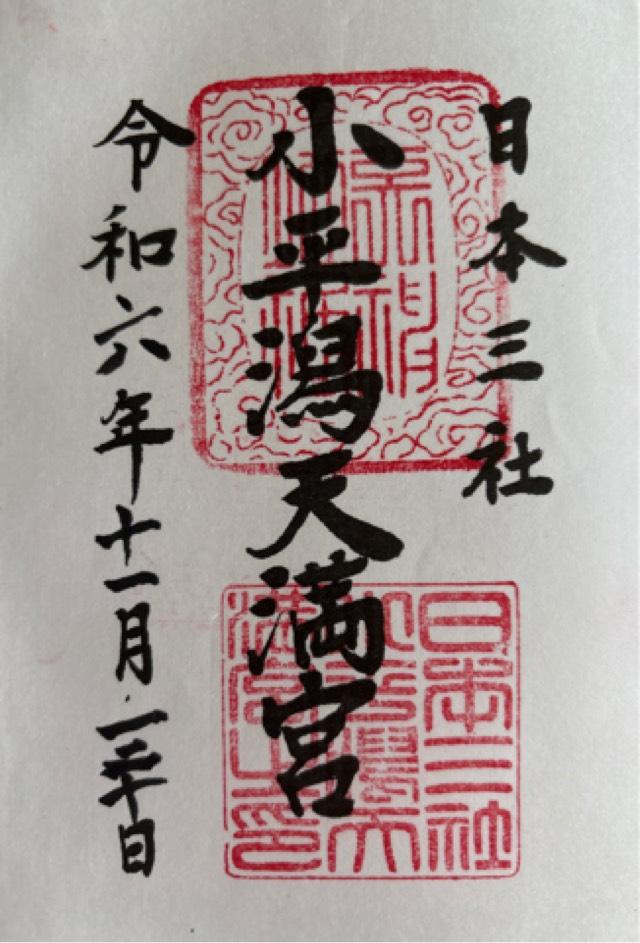 日本三社
小平潟天満宮
令和六年十一月三十日
日本三社
小平潟天
満宮之印